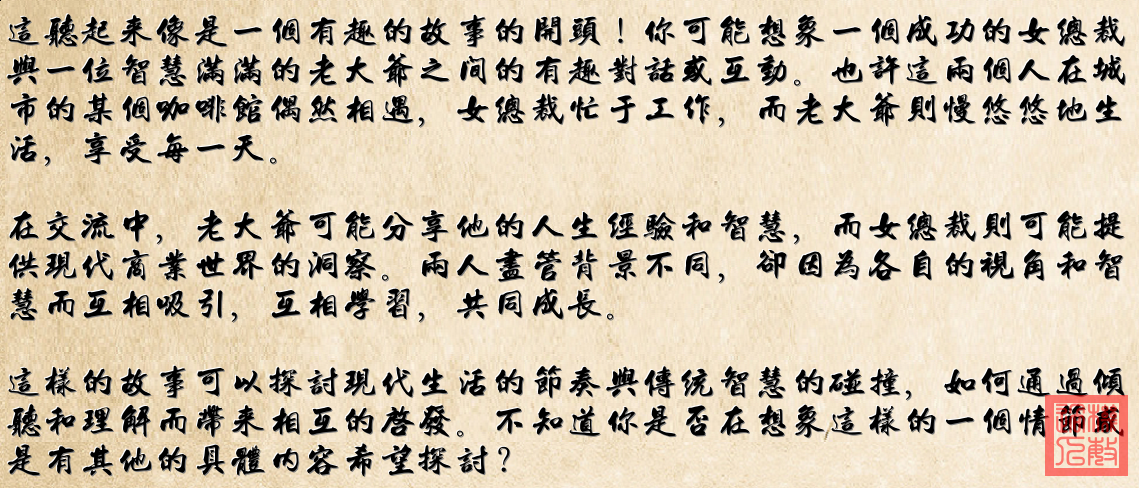 這聽起来像是一個有趣的故事的開頭！你可能想象一個成功的女總裁
與一位智慧滿滿的老大爺之间的有趣對話或互動。也許這兩個人在城
市的某個咖啡館偶然相遇，女總裁忙于工作，而老大爺則慢悠悠地生
活，享受每一天。
在交流中，老大爺可能分享他的人生經驗和智慧，而女總裁則可能提
供現代商業世界的洞察。兩人盡管背景不同，卻因為各自的視角和智
慧而互相吸引，互相學習，共同成長。
這樣的故事可以探討現代生活的節奏與傳统智慧的碰撞，如何通過傾
聽和理解而帶来相互的啓發。不知道你是否在想象這樣的一個情節或
是有其他的具體内容希望探討？